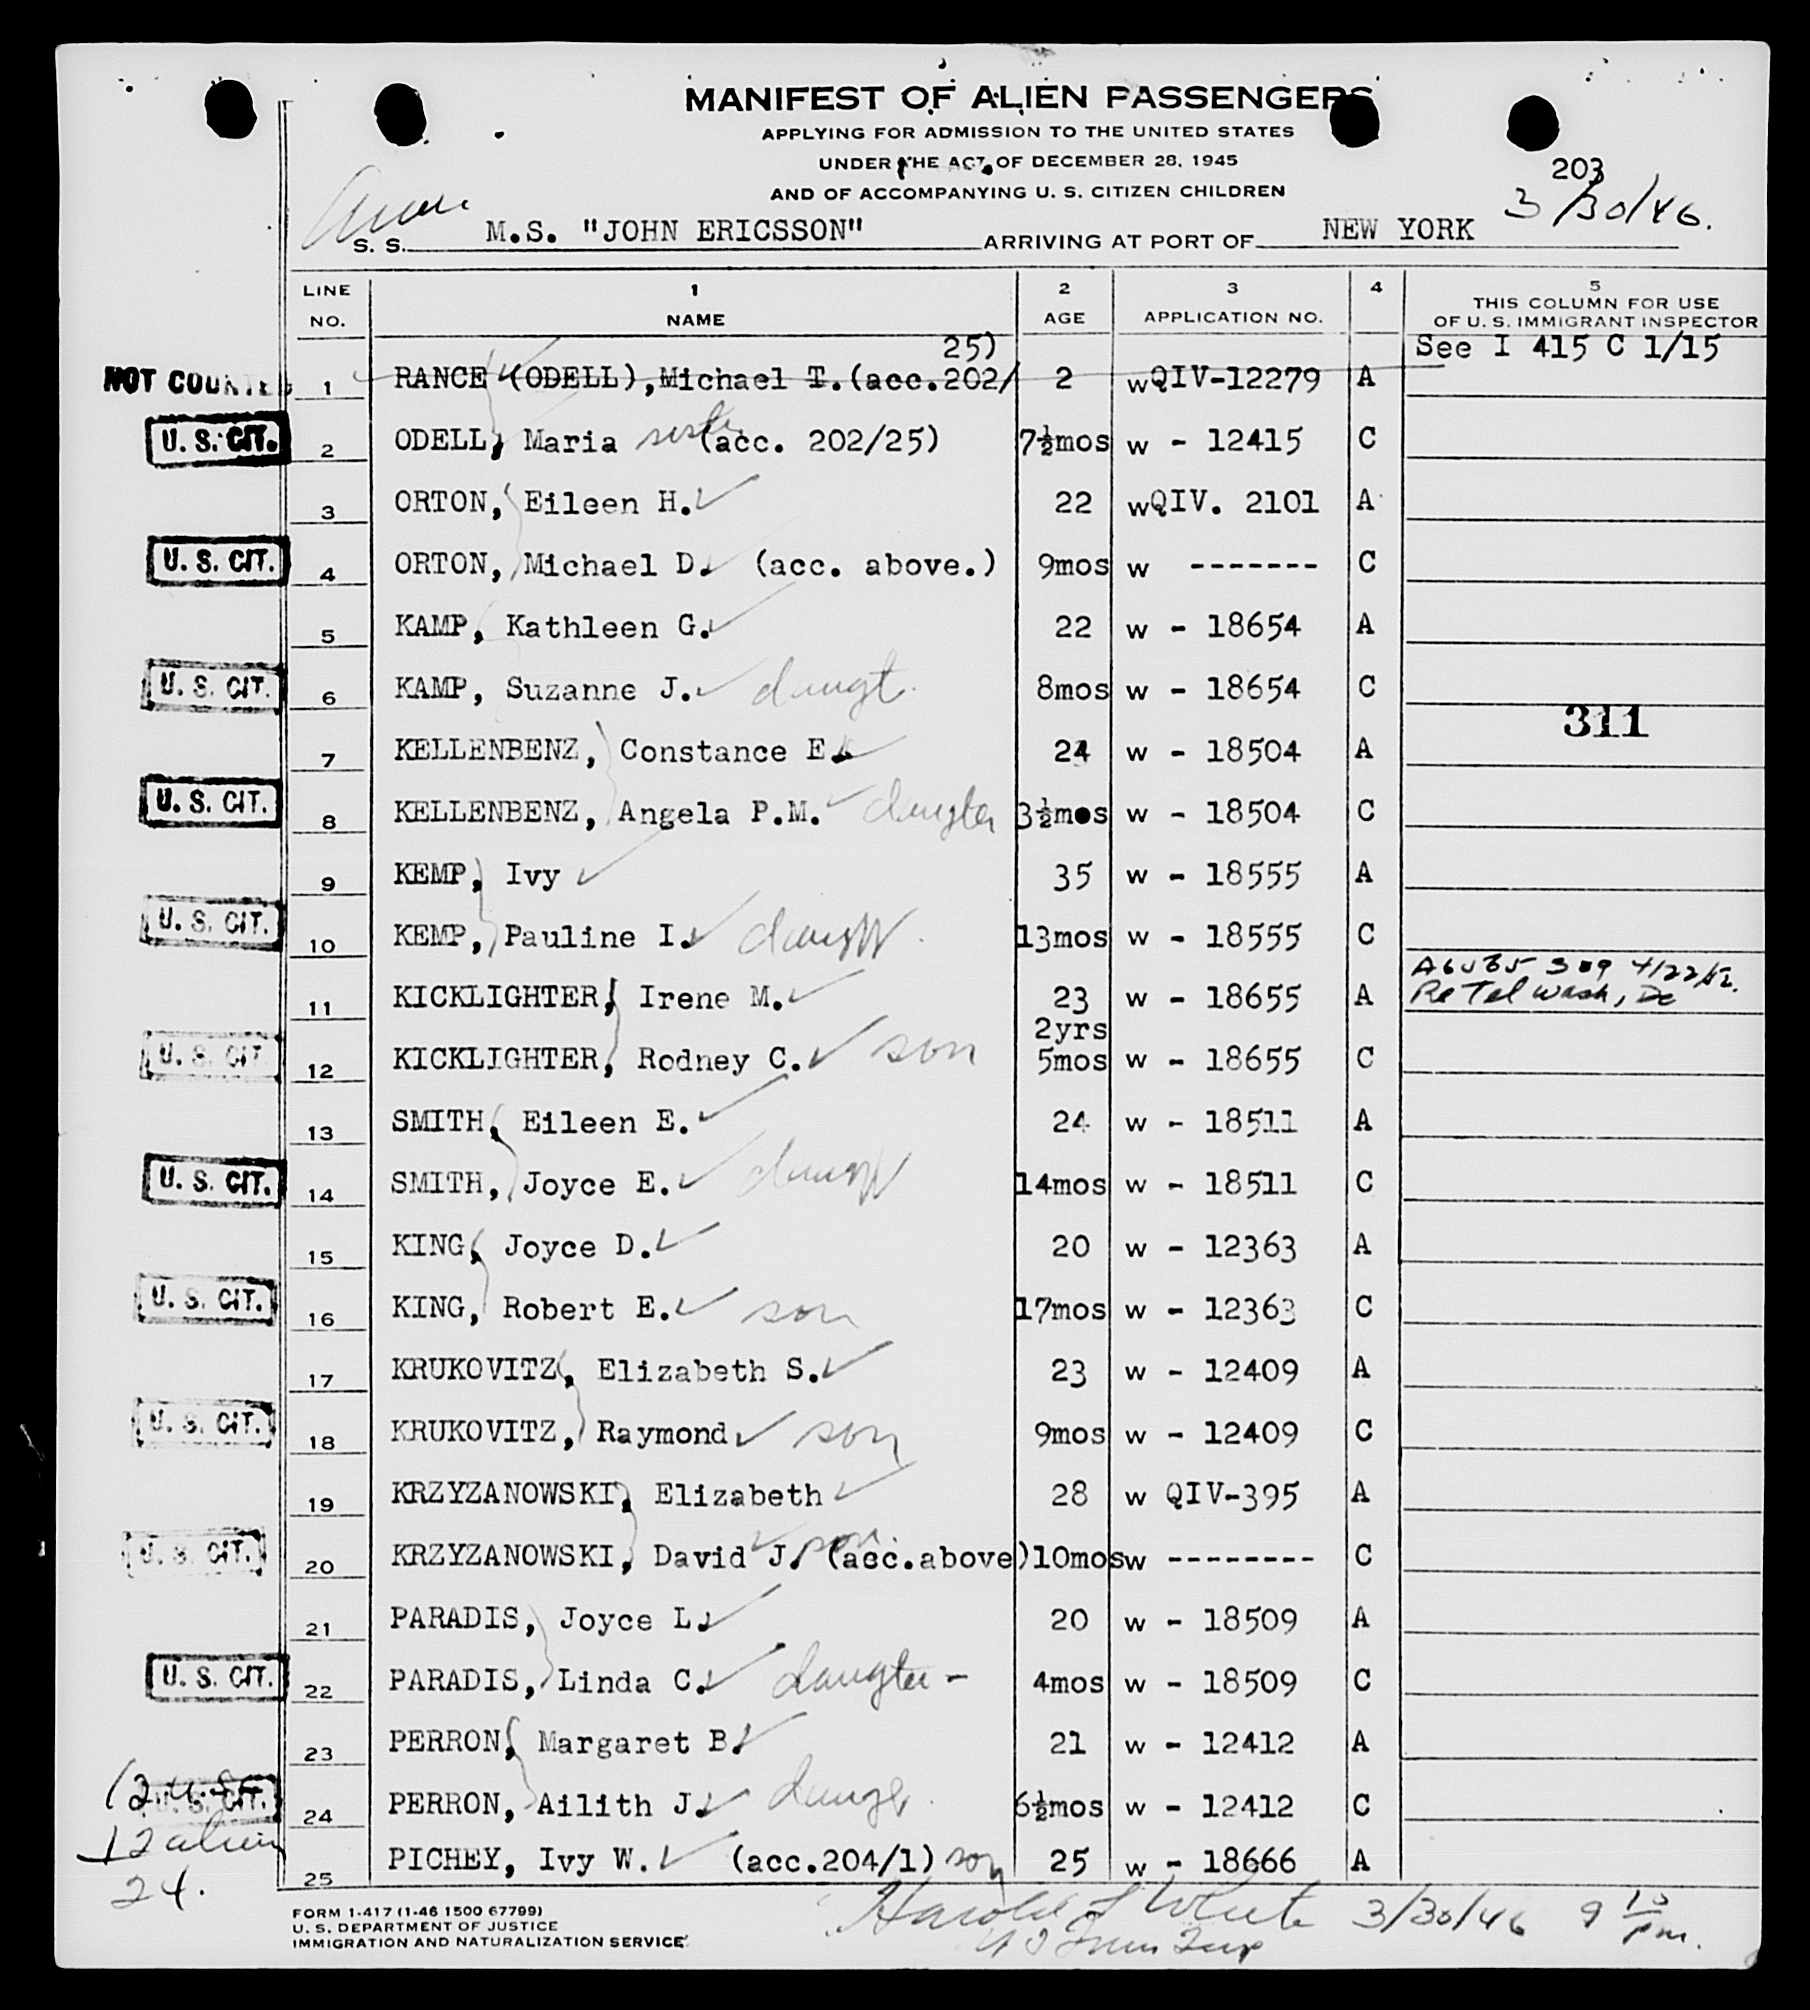 MANIFEST OF ALIEN PASSENGERS
APPLYING FOR ADMISSION TO THE UNITED STATES
UNDER THE ACT OF DECEMBER 28, 1945
AND OF ACCOMPANYING U. S. CITIZEN CHILDREN
203
3/30/46.
S. S. M.S. "JOHN ERICSSON" ARRIVING AT PORT OF NEW YORK
LINE NO. 1 NAME 2 AGE 3 APPLICATION NO. 4 5 THIS COLUMN FOR USE OF U. S. IMMIGRANT INSPECTOR
25) See I 415 C 1/15
NOT COUNTED 1 RANCE (ODELL), Michael T. (acc.202/ 2 wQIV-12279 A
U. S. CIT. 2 ODELL, Maria sister (acc. 202/25) 7½mos w - 12415 C
3 ORTON, Eileen H. 22 wQIV. 2101 A
U. S. CIT. 4 ORTON, Michael D. (acc. above.) 9mos w ------- C
5 KAMP, Kathleen G. 22 w - 18654 A
U. S. CIT. 6 KAMP, Suzanne J. daugt. 8mos w - 18654 C
311
7 KELLENBENZ, Constance E. 24 w - 18504 A
U. S. CIT. 8 KELLENBENZ, Angela P.M. daughter 3½mos w - 18504 C
9 KEMP, Ivy 35 w - 18555 A
U. S. CIT. 10 KEMP, Pauline I. 13mos w - 18555 C
11 KICKLIGHTER, Irene M. 23 w - 18655 A Re Tel Wash, DC
2yrs
U. S. CIT. 12 KICKLIGHTER, Rodney C. son 5mos w - 18655 C
13 SMITH, Eileen E. 24 w - 18511 A
U. S. CIT. 14 SMITH, Joyce E. 14mos w - 18511 C
15 KING, Joyce D. 20 w - 12363 A
U. S. CIT. 16 KING, Robert E. son 17mos w - 12363 C
17 KRUKOVITZ, Elizabeth S. 23 w - 12409 A
U. S. CIT. 18 KRUKOVITZ, Raymond son 9mos w - 12409 C
19 KRZYZANOWSKI, Elizabeth 28 w QIV-395 A
U. S. CIT. 20 KRZYZANOWSKI, David J. son. (acc.above) 10mos w -------- C
21 PARADIS, Joyce L. 20 w - 18509 A
U. S. CIT. 22 PARADIS, Linda C. daughter - 4mos w - 18509 C
23 PERRON, Margaret B. 21 w - 12412 A
12 U.S.C.
U. S. CIT. 24 PERRON, Ailith J. 6½mos w - 12412 C
12 alien
25 PICHEY, Ivy W. (acc.204/1) son 25 w - 18666 A
24.
FORM I-417 (1-46 1500 67799)
U. S. DEPARTMENT OF JUSTICE
IMMIGRATION AND NATURALIZATION SERVICE
Harold White 3/30/46 9 15 pm.